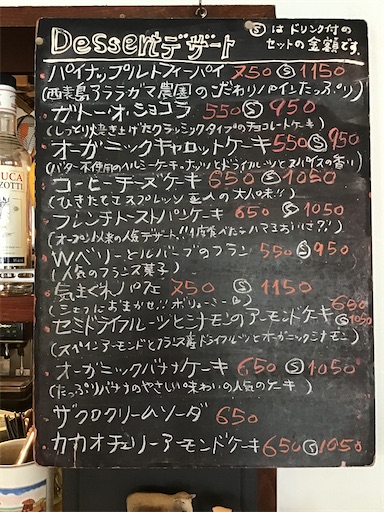 Dessertデザート
Ⓢはドリンク付の
セットの金額です。
パイナップルトフィーパイ 750 Ⓢ 1150
(西表島アララガマ農園のこだわりパインたっぷり)
ガトー・オ・ショコラ 550 Ⓢ 950
(しっとり焼き上げたクラシックタイプのチョコレートケーキ)
オーガニックキャロットケーキ 550 Ⓢ 950
(バター不使用のヘルシーケーキ。ナッツとドライフルーツとスパイスの香り)
コーヒーチーズケーキ 650 Ⓢ 1050
(ひきたてエスプレッソ豆入の大人味!!)
フレンチトーストパンケーキ 650 Ⓢ 1050
(オープン以来の人気デザート!!1度食べたらハマるおいしさ?!)
Wベリーとルバーブのフラン 550 Ⓢ 950
(人気のフランス菓子)
気まぐれパフェ 750 Ⓢ 1150
(シェフにおまかせ!!ボリューミー)
セミドライフルーツとシナモンのアーモンドケーキ 660 Ⓢ 1050
(スペインアーモンドとフランス産ドライフルーツとオーガニックシナモン)
オーガニックバナナケーキ 650 Ⓢ 1050
(たっぷりバナナのやさしい味わいの人気のケーキ)
ザクロクリームソーダ 650
カカオチェリーアーモンドケーキ 650 Ⓢ 1050
LUCA